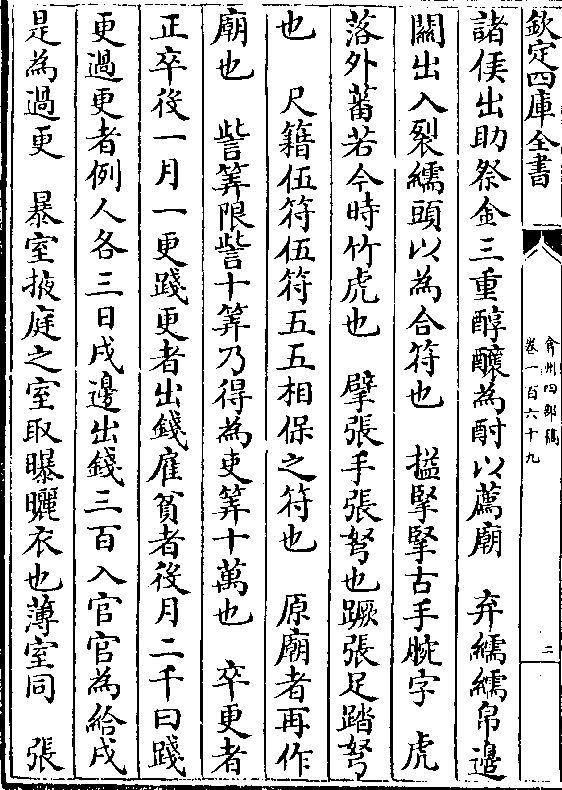 欽定四庫全書
弇州四部稿
卷一百六十九
二
諸侯出助祭金三重醇釀為酎以薦廟　弃繻繻帛邉
關出入裂繻頭以為合符也　搤掔掔古手腕字　虎
落外蕃若今時竹虎也　擘張手張弩也蹶張足踏弩
也　尺籍伍符伍符五五相保之符也　原廟者再作
廟也　訾筭限訾十筭乃得為吏筭十萬也　卒更者
正卒後一月一更踐更者出錢雇貧者後月二千曰踐
更過更者例人各三日戍邉出錢三百入官官為給戍
是為過更　暴室掖庭之室取曝曬衣也薄室同　張